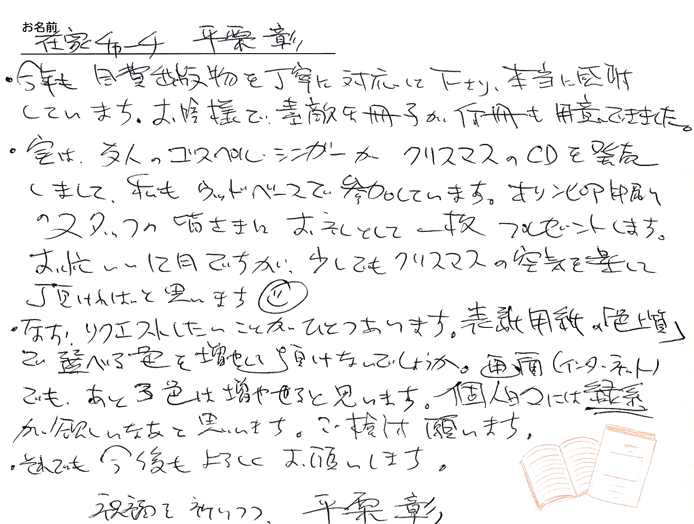 お名前
在家チャーチ 平栗 彰
・今年も 自費出版物を丁寧に対応して下さり、本当に感謝
しています。お陰様で、素敵な冊子が何冊も用意できました。
・実は、友人のゴスペル・シンガーが クリスマスのCDを発売
しまして、私も ウッドベースで参加しています。オリンピア印刷
のスタッフの皆さまに お礼として 一枚 プレゼントします。
お忙しい12月ですが、少しでもクリスマスの空気を楽して
頂ければと思います
・なお、リクエストしたいことがひとつあります。表紙用紙の「色上質」
で 選べる色を増やして頂けないでしょうか。画面(インターネット)
でも、あと3色は増やせると思います。個人的には緑系
が欲しいなあと思います。ご検討 願います。
・それでも 今後も よろしく お願いします。
祝福を祈りつつ、 平栗 彰